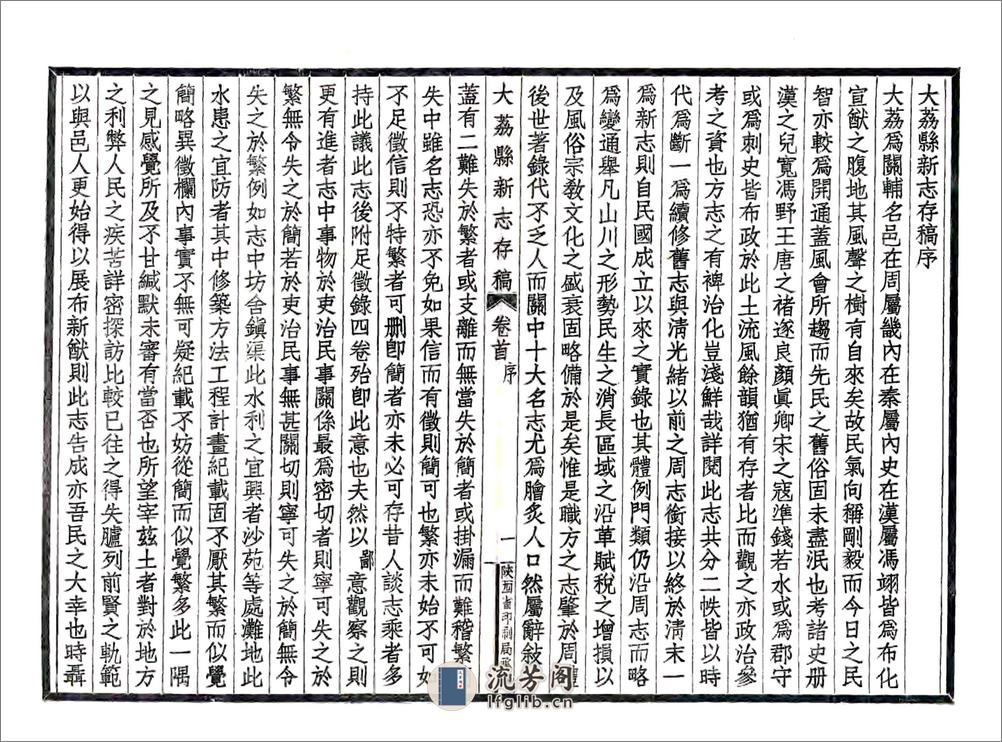 大荔縣新志存稿序
大荔爲關輔名邑在周屬畿內在秦屬內史在漢屬馮翊皆爲布化
宣猷之腹地其風聲之樹有自來矣故民氣向稱剛毅而今日之民
智亦較爲開通蓋風會所趨而先民之舊俗固未盡泯也考諸史册
漢之兒寬馮野王唐之褚遂良顏眞卿宋之寇準錢若水或爲郡守
或爲刺史皆布政於此土流風餘韻猶有存者比而觀之亦政治參
考之資也方志之有裨治化豈淺鮮哉詳閱此志共分二帙皆以時
代爲斷一爲續修舊志與淸光緒以前之周志銜接以終於淸末一
爲新志則自民國成立以來之實錄也其體例門類仍沿周志而略
爲變通舉凡山川之形勢民生之消長區域之沿革賦稅之增損以
及風俗宗敎文化之盛衰固略備於是矣惟是職方之志肇於周禮
後世著錄代不乏人而關中十大名志尤爲膾炙人口然屬辭敍事
大荔縣新志存稿 卷首 序 一 陝西省印刷局
蓋有二難失於繁者或支離而無當失於簡者或掛漏而難稽繁
失中雖名志恐亦不免如果信而有徵則簡可也繁亦未始不可如
不足徵信則不特繁者可刪卽簡者亦未必可存昔人談志乘者多
持此議此志後附足徵錄四卷殆卽此意也夫然以鄙意觀察之則
更有進者志中事物於吏治民事關係最爲密切者則寧可失之於
繁無令失之於簡若於吏治民事無甚關切則寧可失之於簡無令
失之於繁例如志中坊舍鎭渠此水利之宜興者沙苑等處灘地此
水患之宜防者其中修築方法工程計畫紀載固不厭其繁而似覺
簡略異徵欄內事實不無可疑紀載不妨從簡而似覺繁多此一隅
之見感覺所及不甘緘默未審有當否也所望宰茲土者對於地方
之利弊人民之疾苦詳密探訪比較已往之得失臚列前賢之軌範
以與邑人更始得以展布新猷則此志吿成亦吾民之大幸也時聶
流芳阁
lfglib.cn